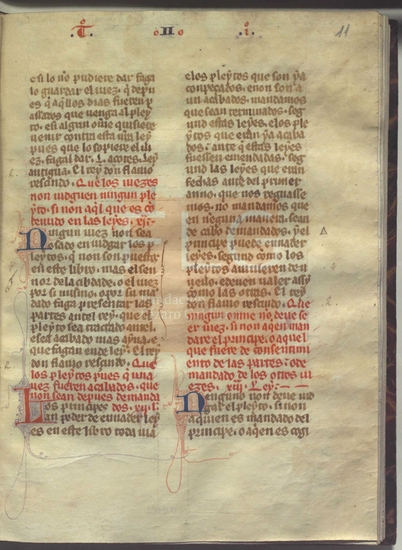 T. II. I.
11
e si lo no pudiere dar faga
lo guardar el iuez, que depu
es que aquellos dias fueren p
assados que venga al pley
to. e si algun omne quisiere
venir contra esta nuestra ley
pues que lo sopiere el iu
ez, faga l dar. L. açotes. Ley
antigua. El rey don flauio
rescindo. Que los iuezes
non iudguen ningun pley
to, si non aquel que es co
tenudo en las leyes. XI.
Ningun iuez non sea
osado en iudgar los p
leytos, que non son puestos
en este libro. mas el sen
nor de la cibdade, o el iuez
por si mismo, o por su ma
dado faga presentar las
partes antel rey, que el
pleyto sea tractado antel,
e sea acabado mas ayna, e
que fagan ende ley. El rey
don flauio rescindo. Que
los pleytos pues que una
vez fueren acabados, que
non sean depues demanda
dos. XII. L.
Los principes
an poder de enader ley
es en este libro toda uia
e los pleytos que son ya
conpeçados, e non son a
un acabados, mandamos
que sean terminados, seg
und estas leyes. e los ple
ytos que eran ya acaba
dos, ante que estas leyes
fuessen emendadas, seg
und las leyes que eran
fechas ante del primer
anno, que nos regnasse
mos, non mandamos que
en neguna manera sean
de cabo demandados. y el
principe puede enader
leyes, segund como los
pleytos auinieren de n
ueuo, e deuen ualer assy
como las otras. El rey
don flauio rescindo. Que
ningun omne no deue se
er iuez, si non a quien man
dare el principe, o aquel
que fuere de consentimi
ento de las partes, o de
mandado de los otros iu
ezes. XIII. L ey.
Nenguno non deue iud
gar el pleyto, si non
a quien es mandado del
principe, o a quien es cogi